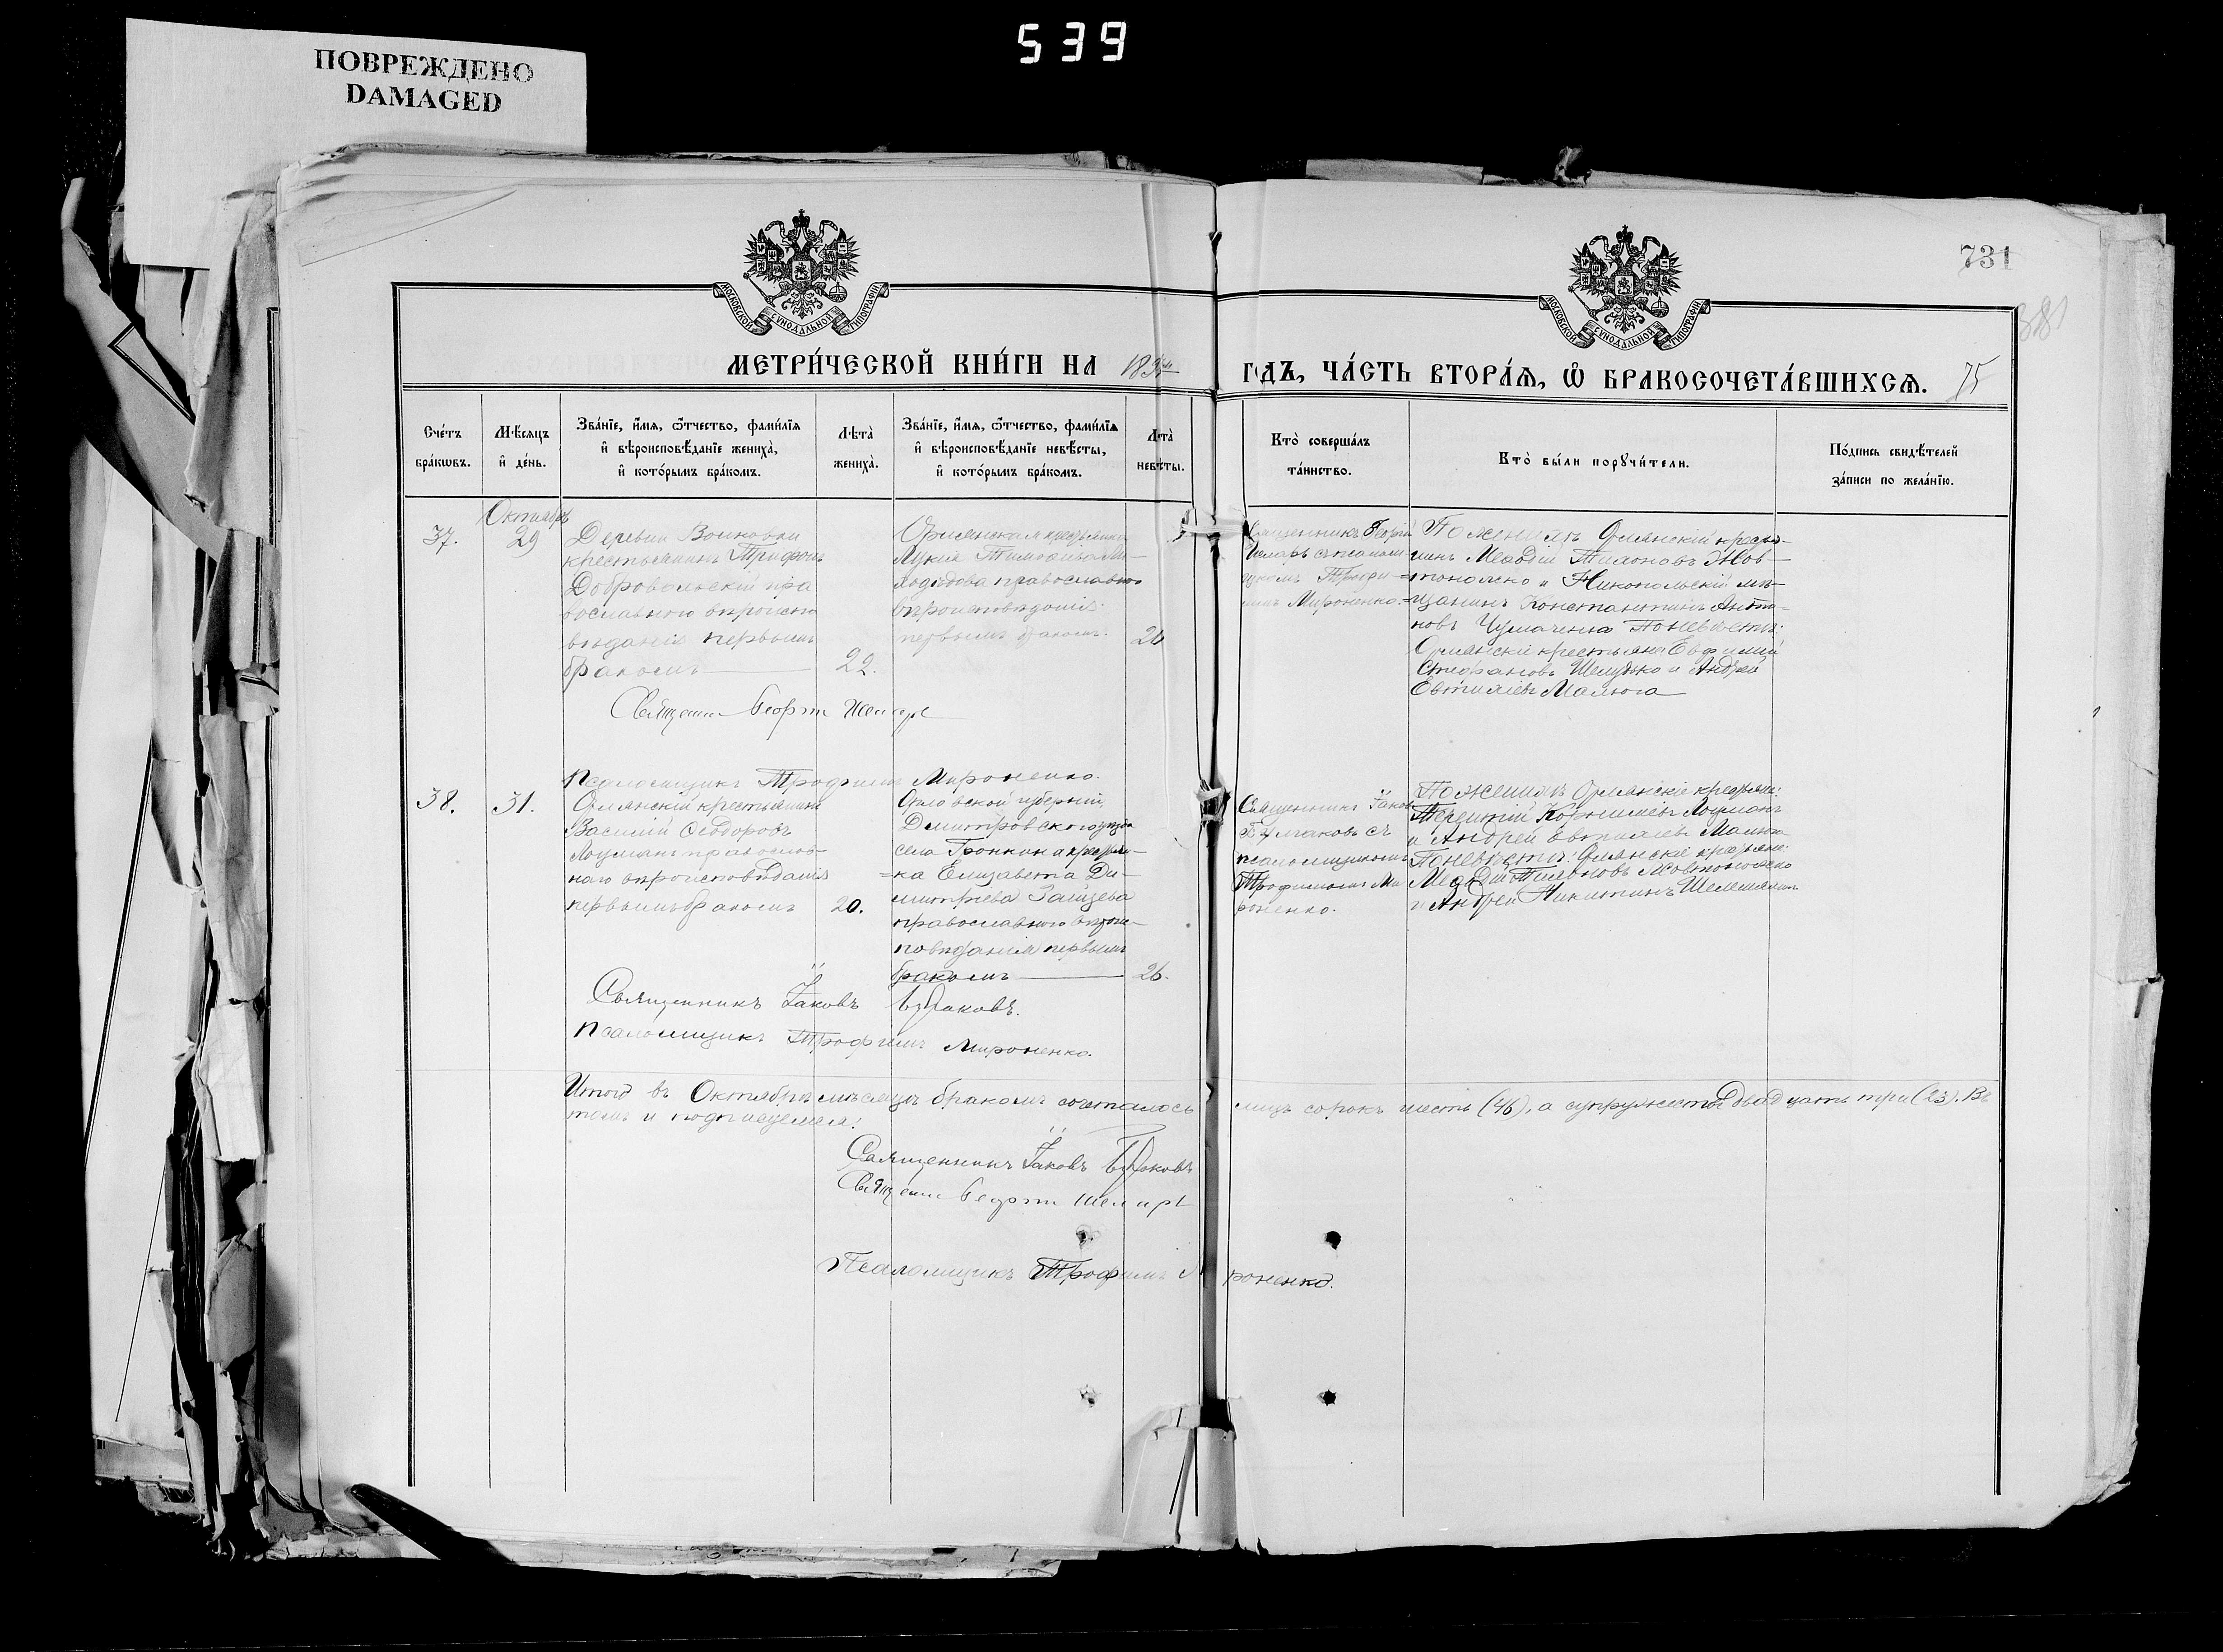 539
ПОВРЕЖДЕНО
DAMAGED
731
381
МОСКОВСКОЙ СѴНОДАЛЬНОЙ ТИПОГРАФІИ
МОСКОВСКОЙ СѴНОДАЛЬНОЙ ТИПОГРАФІИ
МЕТРИ́ЧЕСКОЙ КНИ́ГИ НА
ГОДЪ, ЧА́СТЬ ВТОРА́Я, Ѽ БРАКОСОЧЕТА́ВШИХСЯ. 75
Сче́тъ
бра́кѡвъ.
Мѣ́сяцъ
и҆ де́нь.
Зва́нїе, и҆́мя, ѻ҆́тчество, фами́лїя
и҆ вѣроисповѣ́данїе жениха̀,
и҆ кото́рымъ бра́комъ.
Лѣта̀
жениха̀.
Зва́нїе, и҆́мя, ѻ҆́тчество, фами́лїя
и҆ вѣроисповѣ́данїе невѣ́сты,
и҆ кото́рымъ бра́комъ.
Лѣта̀
невѣ́сты.
Кто̀ соверша́лъ
та́инство.
Кто̀ бы́ли порꙋчи́тели.
По́дпись свидѣ́телей
за́писи по жела́нїю.
37.
Октябрь
29
Деревни Войновки
крестьянинъ Трифонъ
Добровольскій пра
вославнаго вѣроиспо
вѣданія первымъ
бракомъ
22.
крестьянка
Лукия Тимофѣева
православного
вѣроисповѣданія
первымъ бракомъ.
20
Священникъ Георгій
съ псалом-
щикомъ Трофи-
мъ Мироненко.
По женихѣ крестья-
нинъ Меѳодій Тихоновъ Жов-
и Никопольскій мѣ-
щанинъ Константинъ Анто-
новъ Чумаченко По невѣсты:
крестьяне Евфимій
Стефановъ Шемудько и Андрей
Евтихіевъ Малюга
Священни Георги
Псаломщикъ Трофимъ Мироненко.
38.
31.
крестьянинъ
Василій Ѳеодоровъ
Лоцманъ православ-
наго вѣроисповѣданія
первымъ бракомъ
20.
Орловской губерніи,
Дмитровского уѣзда
села крестьян-
ка Елизавета Ди-
митріева Зайцева
православного вѣроис-
повѣданія первымъ
бракомъ
26.
Священникъ Іаковъ
съ
псаломщикомъ
Трофимомъ Ми
роненко.
По женихѣ крестьяне:
Терентій Корнилиевъ Лоцманъ
и Андрей Евтихіевъ Малюга
По невѣстѣ: крестьяне:
Меѳодій Тихоновъ
и Андрей Никитинъ
Священникъ Іаковъ
Псаломщикъ Трофимъ Мироненко.
Итого въ Октябрѣ мѣсяцѣ бракомъ сочеталось лицъ сорокъ шесть (46), а супружествъ двадцать три (23). Въ
томъ и подписуемся:
Священникъ Іаковъ
Священни Георги
Псаломщикъ Трофимъ Мироненко.